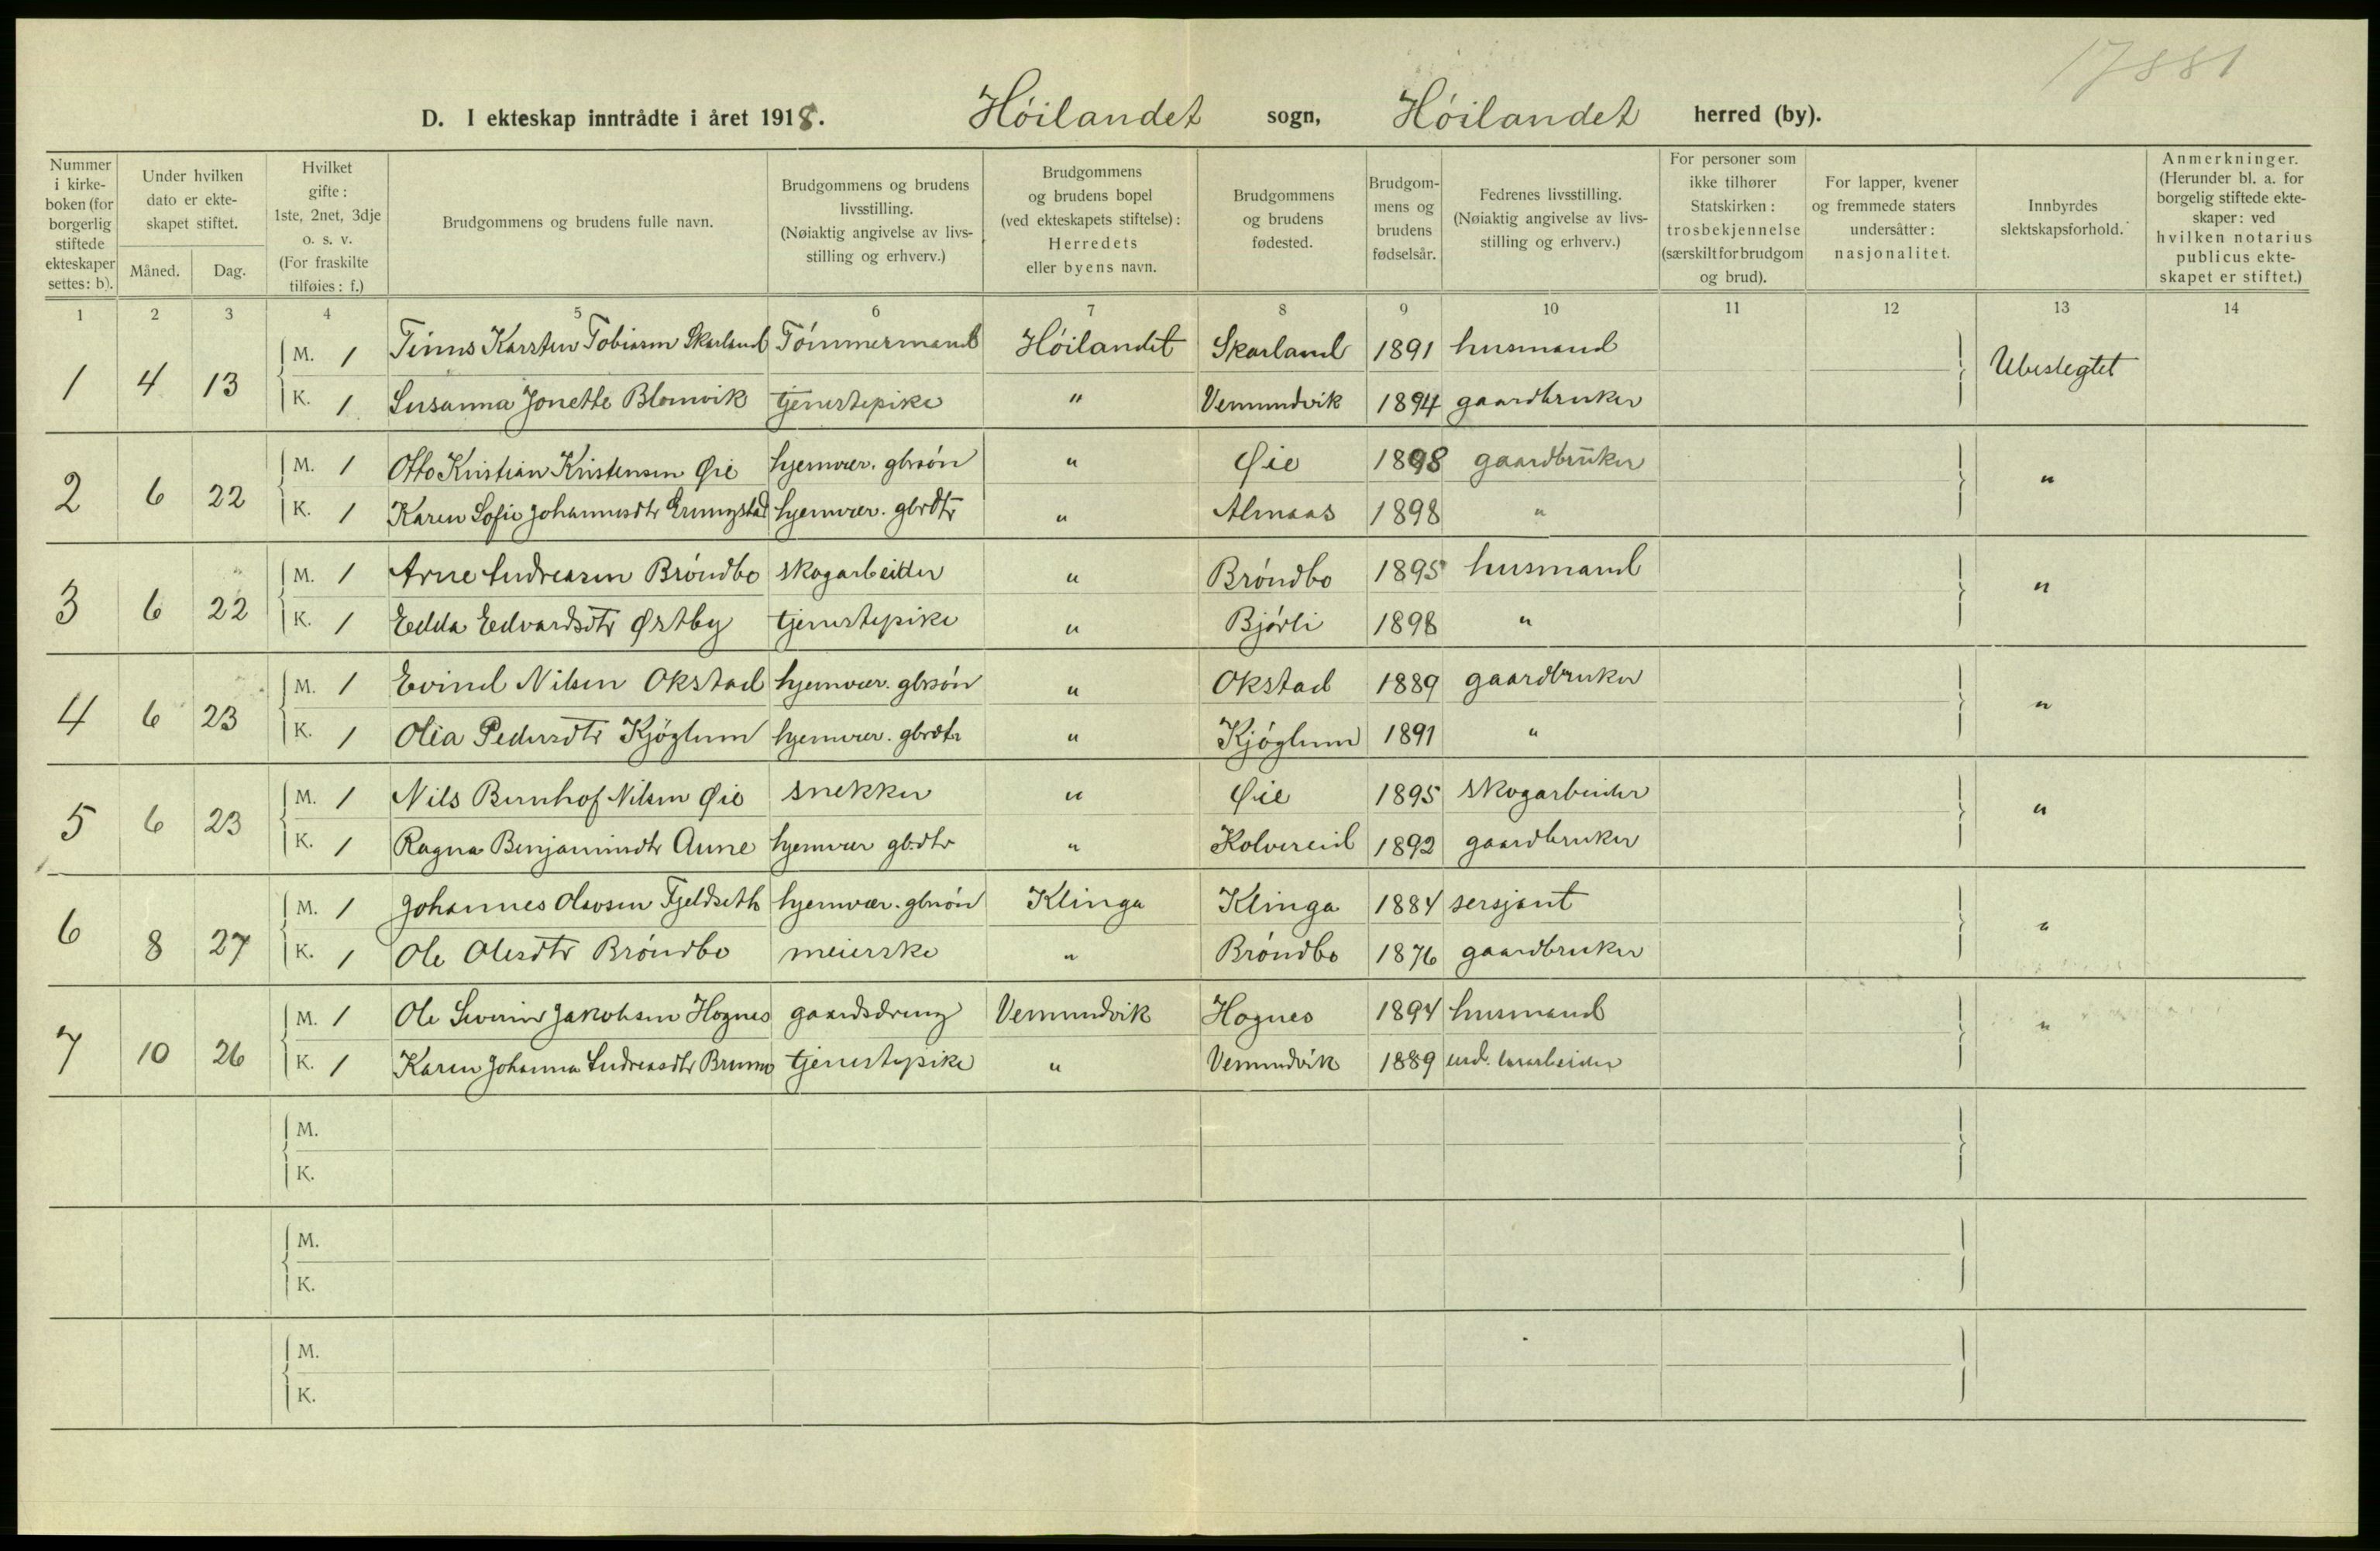 17881
D. I ekteskap inntrådte i året 1918. Höilandet sogn, Höilandet herred (by).
Nummer i kirke-boken (for borgerlig stiftede ekteskaper settes: b).
Under hvilken dato er ekte-skapet stiftet.
Måned. Dag.
Hvilket gifte: 1ste, 2net, 3dje o. s. v. (For fraskilte tilføies: f.)
Brudgommens og brudens fulle navn.
Brudgommens og brudens livsstilling. (Nøiaktig angivelse av livs-stilling og erhverv.)
Brudgommens og brudens bopel (ved ekteskapets stiftelse): Herredets eller byens navn.
Brudgommens og brudens fødested.
Brudgom-mens og brudens fødselsår.
Fedrenes livsstilling. (Nøiaktig angivelse av livs-stilling og erhverv.)
For personer som ikke tilhører Statskirken: trosbekjennelse (særskilt for brudgom og brud).
For lapper, kvener og fremmede staters undersåtter: nasjonalitet.
Innbyrdes slektskapsforhold.
Anmerkninger. (Herunder bl. a. for borgelig stiftede ekte-skaper: ved hvilken notarius publicus ekte-skapet er stiftet.)
1 2 3 4 5 6 7 8 9 10 11 12 13 14
1 4 13 M. 1 Karsten Tobiasen Skarland Tömmermand Höilandet Skarland 1891 husmand Ubeslegtet
K. 1 Susanna Jonette Blomvik tjenestepike " Vemundvik 1894 gaardbruker
2 6 22 M. 1 Otto Kristian Kristensen Øie hjemvær. gbrsön " Øie 1898 gaardbruker "
K. 1 Karen Sofie Johannesdtr Grungstad hjemvær. gbrdtr " Almaas 1898 "
3 6 22 M. 1 Arne Andreasen Bröndbo skogarbeider " Bröndbo 1895 husmand "
K. 1 Edda Edvardsdtr Østby tjenestepike " Bjørli 1898 "
4 6 23 M. 1 Evind Nilsen Okstad hjemvær. gbrsön " Okstad 1889 gaardbruker "
K. 1 Olia Pedersdtr Kjöglum hjemvær. gbrdtr " Kjöglum 1891 "
5 6 23 M. 1 Nils Bernhof Nilsen Øie snekker " Øie 1895 skogarbeider "
K. 1 Ragna Benjaminsdtr Aune hjemvær gbdtr " Kolvereid 1892 gaardbruker
6 8 27 M. 1 Johannes Olavsen Fjeldseth hjemvær. gbrsön Klinga Klinga 1884 sersjant "
K. 1 Ole Olesdtr Bröndbo meierske " Bröndbo 1876 gaardbruker
7 10 26 M. 1 Ole Severin Jakobsen Hognes gaardsdreng Vemundvik Hognes 1894 husmand "
K. 1 Karen Johanna Andreasdtr Brumo tjenestepike " Vemundvik 1889
M.
K.
M.
K.
M.
K.